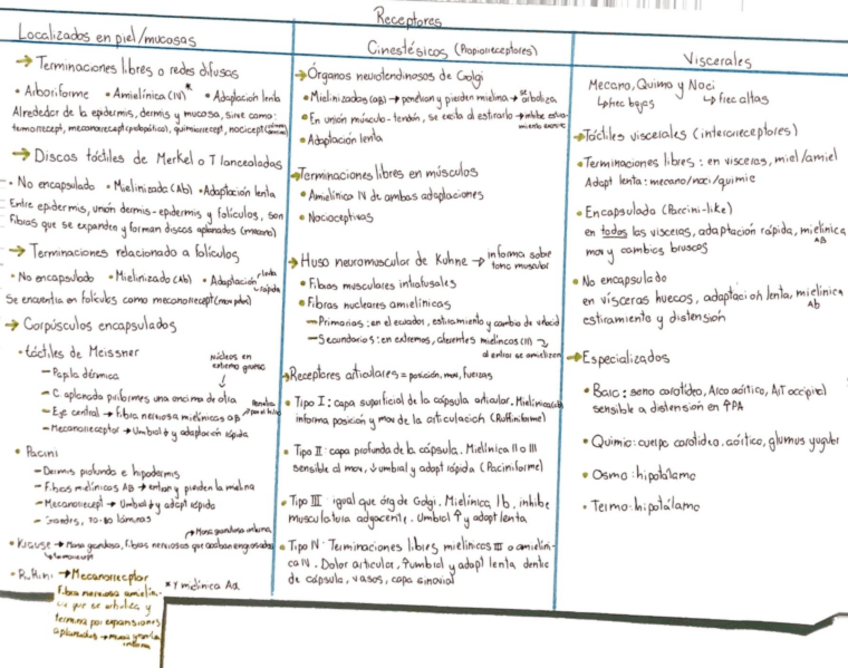 Receptores
Localizados en piel/mucosas
→ Terminaciones libres o redes difusas
• Arboriforme • Amielínica (IV)* • Adaptación lenta
Alrededor de la epidermis, dermis y mucosa, sirve como:
termorecept, mecanorecept (protopática), quimiorrecept, nocicept
→ Discos táctiles de Merkel o T lanceoladas
• No encapsulado • Mielinizada (Ab) • Adaptación lenta
Entre epidermis, unión dermis-epidermis y folículos, son
fibras que se expanden y forman discos aplanados (mecano)
→ Terminaciones relacionado a folículos
• No encapsulado • Mielinizado (Ab) • Adaptación lenta rápida
Se encuentra en folículos como mecanorrecept
→ Corpúsculos encapsulados
• táctiles de Meissner
— Papila dérmica
núcleos en extremo grueso
— C aplanada piriformes una encima de otra
— Eje central → fibra nerviosa mielínicas aβ
— Mecanorreceptor → Umbral ↓ y adaptación rápida
• Pacini
— Dermis profunda e hipodermis
— Fibras mielínicas AB → entran y pierden la mielina
— Mecanorrecept → Umbral ↓ y adapt rápida
— Grandes, 20-80 láminas
• Krause → Masa grandosa, fibras nerviosas que acaban engrosadas
• Ruffini → Mecanorrecptor
Fibra nerviosa amielínica que se arboliza y
termina por expansiones
aplanadas →
* y mielínica Aa
Cinestésicos (Propiorreceptores)
→ Órganos neurotendinosos de Golgi
• Mielinizadas (aβ) → penetran y pierden mielina → se arboliza
• En unión músculo-tendón, se excita al estirarlo → inhibe
• Adaptación lenta
→ Terminaciones libres en músculos
• Amielínica IV de ambas adaptaciones
• Nocioceptivas
→ Huso neuromuscular de Kuhne → informa sobre tono muscular
• Fibras musculares intrafusales
• Fibras nucleares amielínicas
— Primarias: en el ecuador, estiramiento y cambio de velocid
— Secundarios: en extremos, aferentes mielíncos (II)
al entrar se amielizan
→ Receptores articulares = posición, mov, fuerzas
• Tipo I: capa superficial de la cápsula articular. Mielínica
informa posición y mov de la articulación (Ruffiniforme)
• Tipo II: capa profunda de la cápsula. Mielínica II o III
sensible al mov, ↓umbral y adapt rápida (Paciniforme)
• Tipo III: igual que órg de Golgi. Mielínica Ib, inhibe
musculatura adyacente. Umbral ↑ y adapt lenta
• Tipo IV: Terminaciones libres mielinicas III o amielínica IV. Dolor articular, ↑umbral y adapt lenta dentro
de cápsula, vasos, capa sinovial
Viscerales
Mecano, Quimio y Noci
↳ frec bajas ↳ frec altas
→ Táctiles viscerales (interorreceptores)
• Terminaciones libres: en visceras, miel/amiel
Adapt lenta: mecano/noci/quimio
• Encapsulada (Paccini-like)
en todas las visceras, adaptación rápida, mielinica AB
mov y cambios bruscos
• No encapsulado
en vísceras huecos, adaptacion lenta, mielinica Ab
estiramiento y distensión
→ Especializados
• Baro: seno carotídeo, Arco aórtico,
sensible a distensión en ↑PA
• Quimio: cuerpo carotídeo, aórtico, glumus yugular
• Osmo: hipotálamo
• Termo: hipotálamo